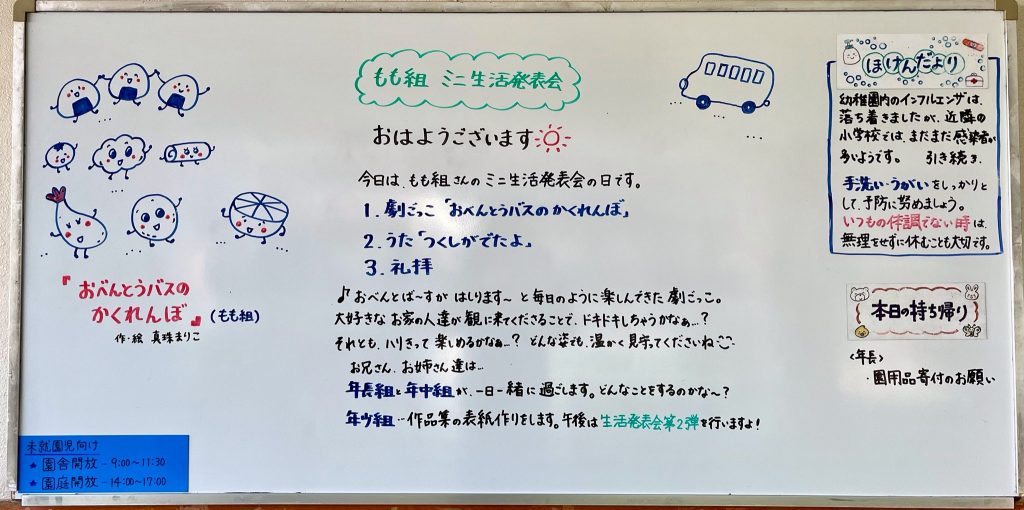 もも組 ミニ生活発表会
おはようございます
今日は、もも組さんのミニ生活発表会の日です。
1. 劇ごっこ「おべんとうバスのかくれんぼ」
2. うた「つくしがでたよ」
3. 礼拝
♪おべんとば〜すが はしります〜 と毎日のように楽しんできた劇ごっこ。
大好きな お家の人達が観に来てくださることで、ドキドキしちゃうかなぁ…?
それとも、ハリきって楽しめるかなぁ…? どんな姿も、温かく見守ってくださいね
お兄さん、お姉さん達は…
年長組と年中組が、一日一緒に過ごします。どんなことをするのかな〜?
年少組…作品集の表紙作りをします。午後は生活発表会第2弾を行いますよ!
『おべんとうバスの
かくれんぼ』(もも組)
作・絵 真珠まりこ
未就園児向け
★ 園舎開放 - 9:00〜11:30
★ 園庭開放 - 14:00〜17:00
ほけんだより
幼稚園内のインフルエンザは、
落ち着きましたが、近隣の
小学校では、まだまだ感染者が
多いようです。 引き続き、
手洗い・うがいをしっかりと
して、予防に努めましょう。
いつもの体調でない時は、
無理をせずに休むことも大切です。
本日の持ち帰り
<年長>
・園用品寄付のお願い